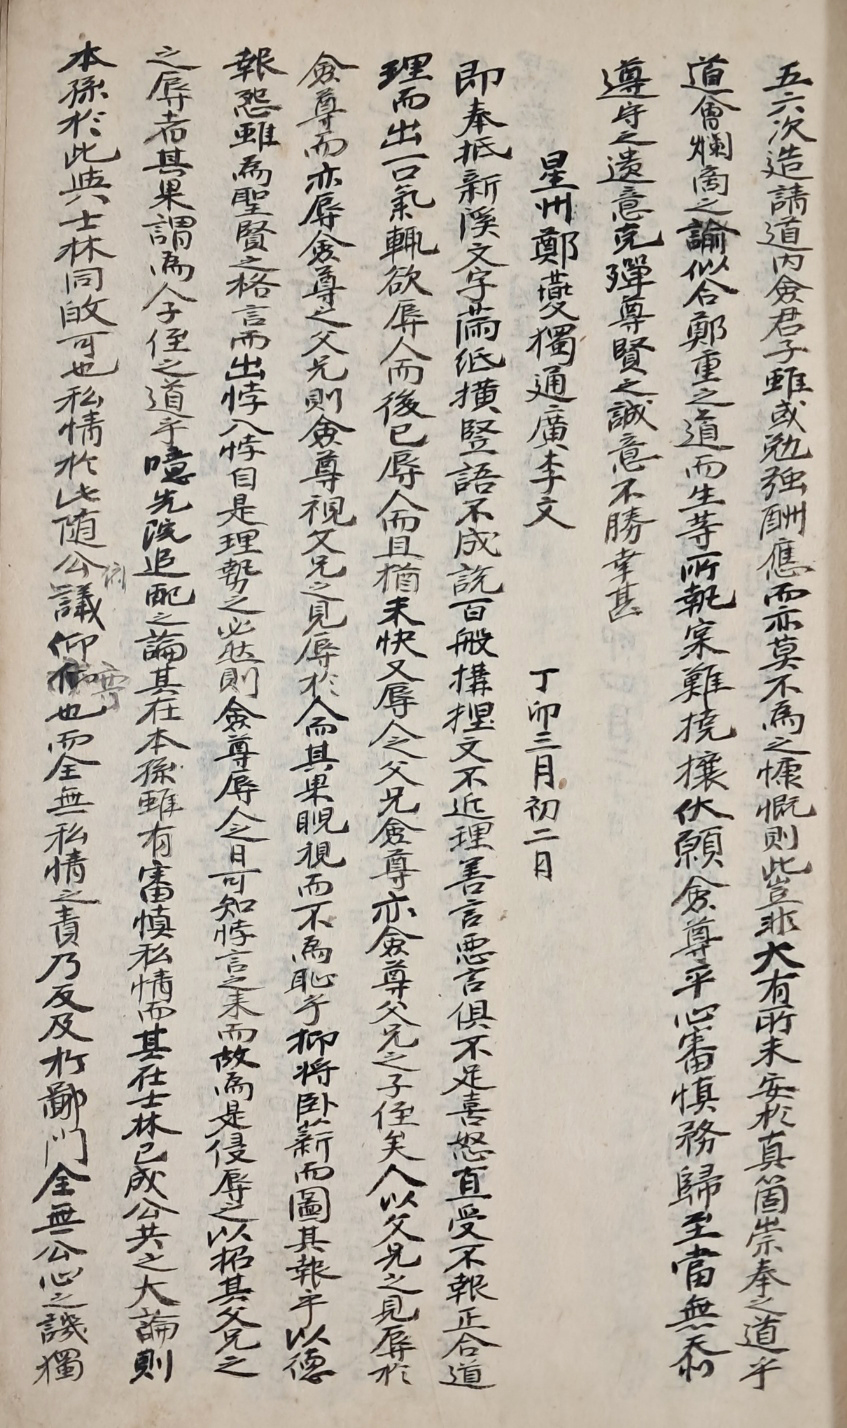 五六次造請道內僉君子雖或勉强酬應而亦莫不爲之慷慨則此豈非大有所未安於眞箇崇奉之道乎
道會爛啇之諭似合鄭重之道而生等所執寀難撓攘伏願僉尊平心審愼務歸至當無忝
遵守之遺意克殫尊賢之誠意不勝幸甚
星州鄭夔獨通廣李文 丁卯三月初二日
卽奉抵新溪文字滿紙擴竪語不成說百般搆捏文不近理善言惡言俱不足喜怒直受不報正合道
理而出一口氣輒欲辱人而後已辱人而且猶未快又辱人之父兄僉尊亦僉尊父兄之子侄矣人以父兄之見辱於
僉尊而亦辱僉尊之父兄則僉尊視父兄之見辱於人而其果睍視而不爲恥乎抑將卧薪而圖其報乎以德
報怨雖爲聖賢之格言而出悖入悖自是理勢之必然則僉尊辱人之日可知悖言之来而故爲是侵辱之以招其父兄之
之辱者其果謂爲人子侄之道乎噫先院追配之論其在本孫雖有審愼私情而其在士林已成公共之大論則
本孫於此與士林同啟可也私情於此随公議仰也而全無私情之責乃反及於鄙門全無公心之譏獨